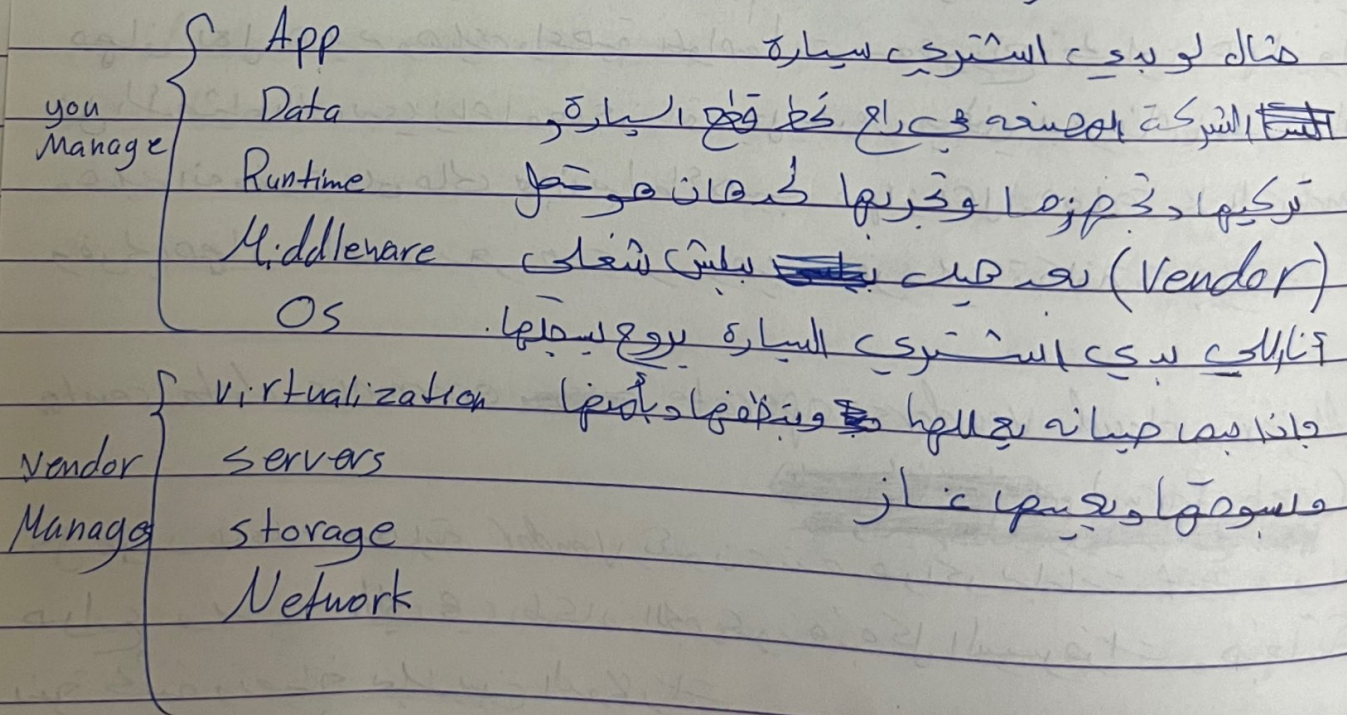 you Manage
App
Data
Runtime
Middleware
OS
Vendor Manage
Virtualization
Servers
Storage
Network
مثال لو بدي اشتري سيارة
الشركة المصنعه هي راح تحط قطع السيارة و
تركبها وتجهزها وتجربها لحد هان هو شغل
(Vendor) بعد هيك ببلش شغلي
أنا اللي بدي اشتري السيارة بروح بسجلها.
وانا بعمل صيانه وبنظفها
وبسوقها وبعبيها غاز